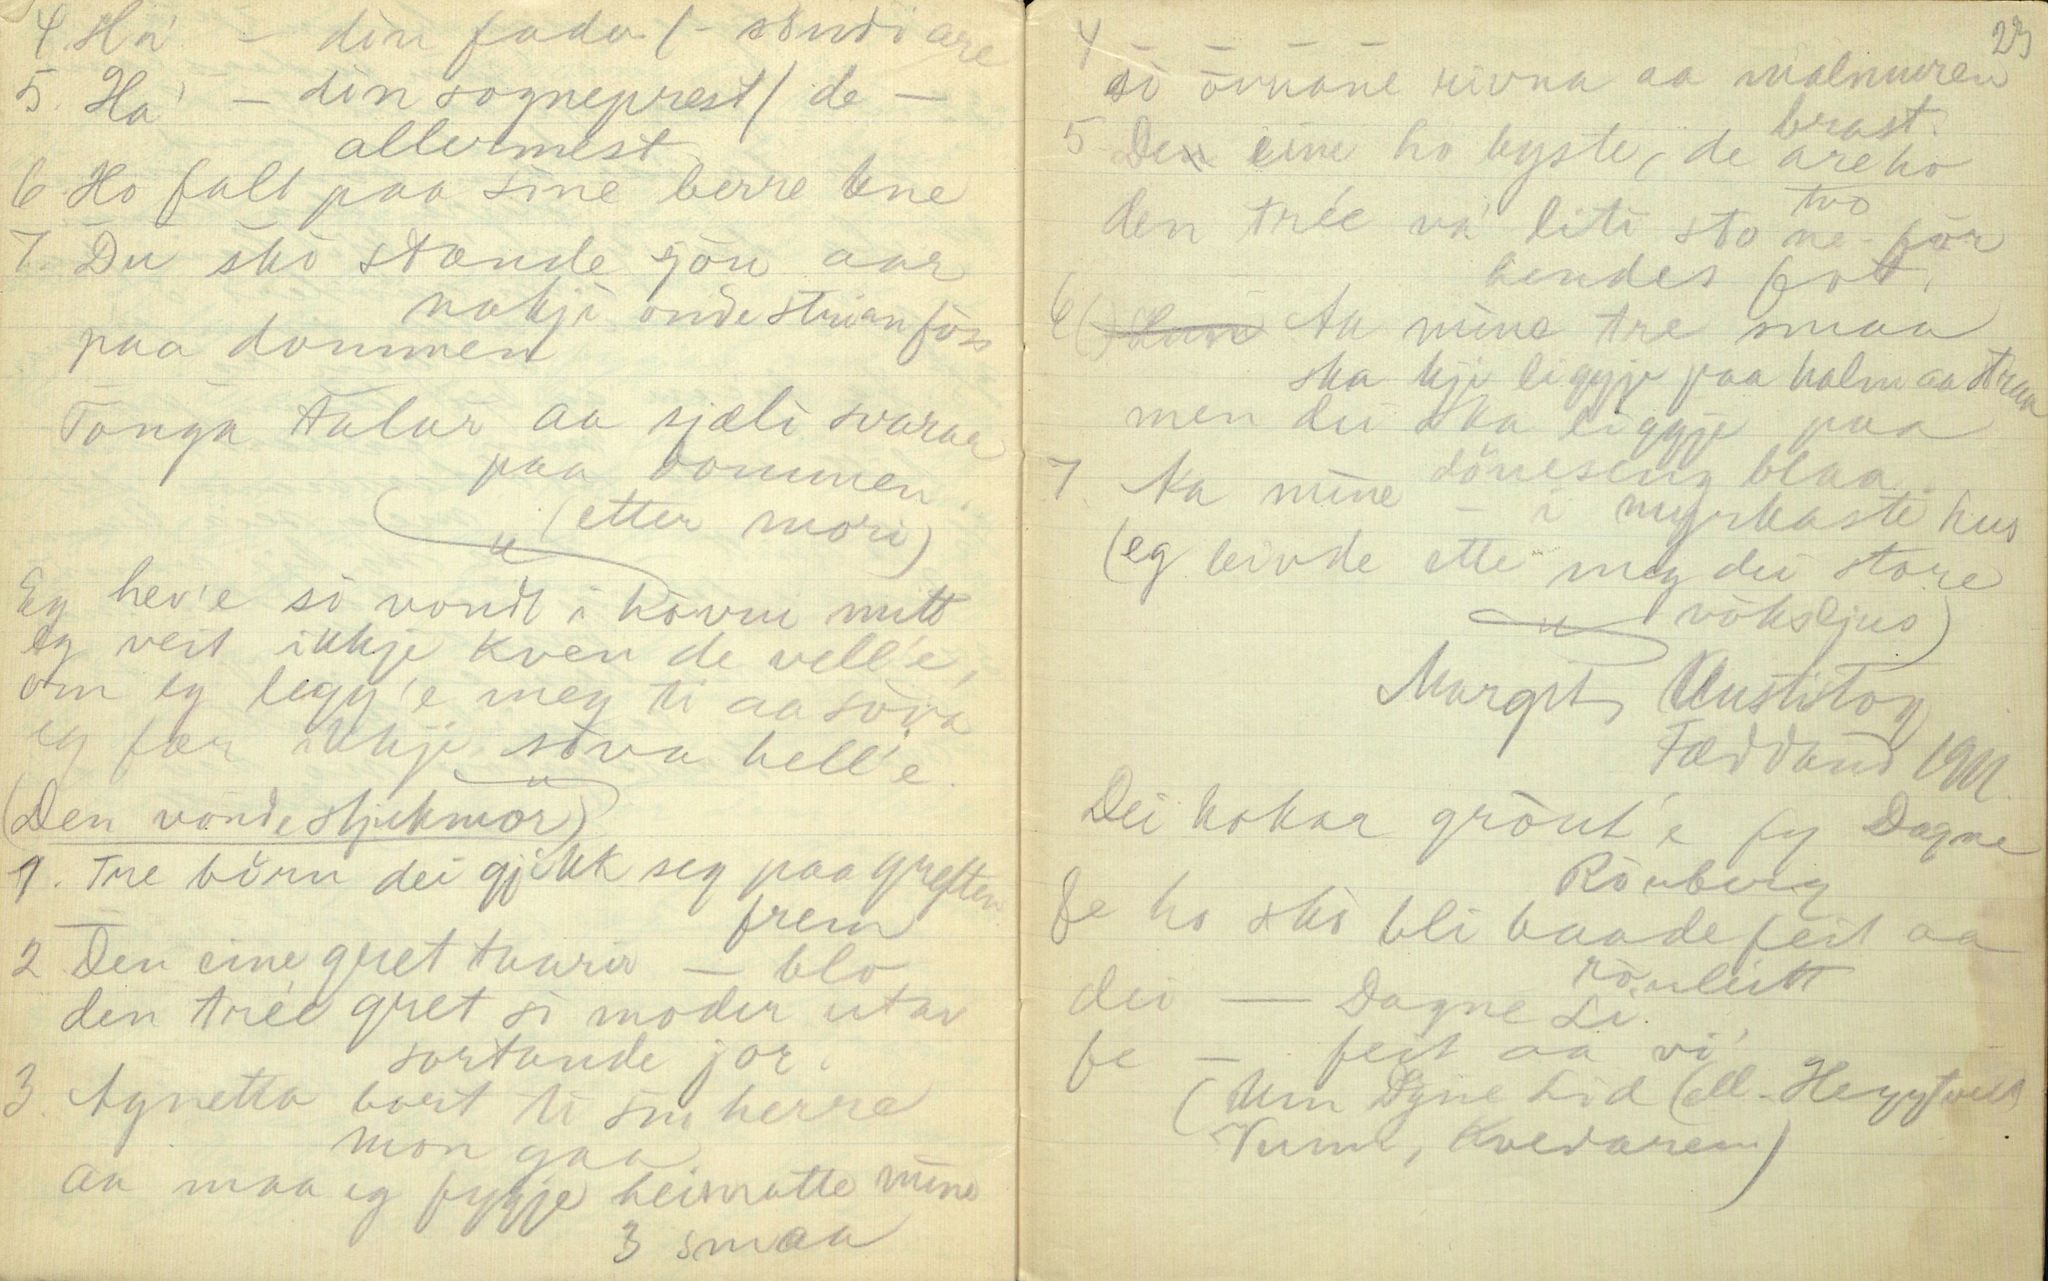 4 Ha' – din fader (– söndi are
5. Ha' – din sogneprest / de –
allermest
6 Ho falt paa sine berre kne
7. Du sko stande sjön aar
nokji onde strian foss
paa dommen
Tonga talar aa sjæli svarar
paa dommen.
(etter mori)
Eg hev'e so vondt i hovui mitt
eg veit ikkje kven de vell'e,
om eg legg'e meg ti aa sova
eg fær ikkje sova hell'e.
(Den vonde stjukmor)
1. Tre born dei gjikk seg paa greften
frem
2 Den eine gret taarir – blo
den trée gret si moder utav
sortande jor.
3. Agnetta bort ti sin herre
mon gaa
aa maa eg fygje heimatte mine
3 smaa
23
4 – – – –
so ovnane rivna aa malmuren
brast.
5 Den eine ho kyste, de are ho
two
den trée va' liti sto ne for
hendes fot.
6 () Aa mine tre smaa
ska kji liggje paa halm aa straa
men du ska liggje paa
döneseng blaa
7. Aa mine – i myrkaste hus
(eg leivde ette meg dei store
voksljus)
Margit
Fæddand 1911
Dei kokar grönt'e fy Dagne
Rönberg
fe ho sko bli baade feit aa
rönleitt
dei — Dagne Li
fe – feit aa vi'
(Um Dgne Lid (ell. Heggtveit
Vinn, Kvedaren)